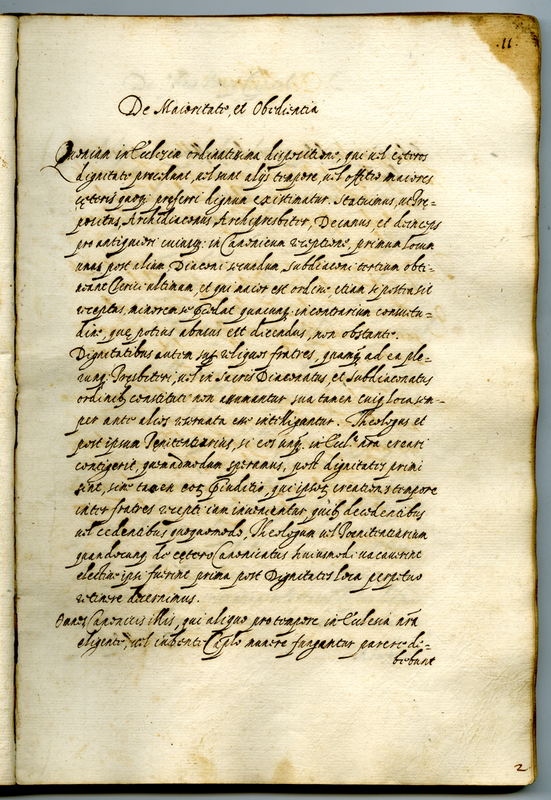 .11.
De Maioritate, et Obedientia
Quoniam in Ecclesia ordinatissima dispositione, qui vel cęteros
dignitate precedant, vel sunt alijs tempore, vel offitio maiores
cęteris quoq; preferri dignum existimatur. Statuimus, ut Pre-
positus, Archidiaconus, Archipresbiter, Decanus, et deinceps
pro antiquiori cuiusq; in Canonicum receptione, primum locum
unus post alium, Diaconi secundum, Subdiaconi tertium obti-
neant Clerici ultimum, et qui maior est ordine, etiam si postea sit
receptus, minorem se quacunq; in contrarium consuetu-
dine, que potius abusus est dicendus, non obstante.
Dignitatibus autem suq; reliquos fratres, quamq; ad ea ple-
runq; Presbiteri, vel in Sacris Diaconatus, et Subdiaconatus
ordinib; constituti non assumantur, sua tamen cuiq; loca sem-
per ante alios reservata esse intelligantur. Theologus et
post ipsum Penitentiarius, si eos unq; in Eccl.a nr̃a creari
contigerit, quemadmodum speramus, post dignitates primi
sint, sine tamen eoq; Iuditio, qui ipsoq; creationis tempore
inter fratres recepti iam inveniantur quib; decedentibus
vel cedentibus quoquomodo, Theologum vel Poenitentiarium
quandocunq; de cętero Canonicatus huiusmodi vacaverint
elective ipsi fuerint prima post Dignitates loca perpetuo
retinere decernimus.
Canonicis illis, qui aliquo pro tempore in Ecclesia nr̃a
eligente, vel iubente Caplo munere fungantur parere de-
bebunt
2